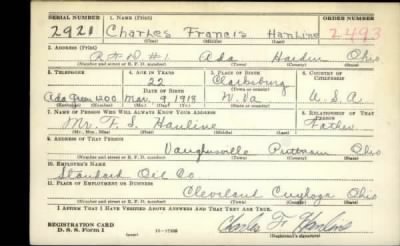 SERIAL NUMBER 1. NAME (Print) ORDER NUMBER
2921 Charles Francis Hanline 2493
(First) (Middle) (Last)
2. ADDRESS (Print)
R#D. #1 Ada Hardin Ohio
(Number and street or R. F. D. number) (Town) (County) (State)
3. TELEPHONE 4. AGE IN YEARS 5. PLACE OF BIRTH 6. COUNTRY OF CITIZENSHIP
22 Clarksburg
DATE OF BIRTH (Town or county)
Ada 1200 Mar. 9 1918 W. Va U.S.A.
(Exchange) (Number) (Mo.) (Day) (Yr.) (State or country)
7. NAME OF PERSON WHO WILL ALWAYS KNOW YOUR ADDRESS 8. RELATIONSHIP OF THAT PERSON
Mr. F. S. Hanline Father
(Mr., Mrs., Miss) (First) (Middle) (Last)
9. ADDRESS OF THAT PERSON
Vaughnsville Puttnam Ohio
(Number and street or R. F. D. number) (Town) (County) (State)
10. EMPLOYER'S NAME
Standard Oil Co.
11. PLACE OF EMPLOYMENT OR BUSINESS
Cleveland Cuyhoga Ohio
(Number and street or R. F. D. number) (Town) (County) (State)
I AFFIRM THAT I HAVE VERIFIED ABOVE ANSWERS AND THAT THEY ARE TRUE.
REGISTRATION CARD Charles F. Hanline
D. S. S. Form 1 (Registrant's signature)